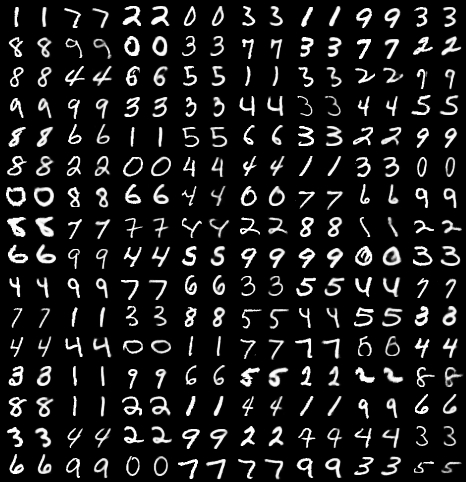 1 1 7 7 2 2 0 0 3 3 1 1 9 9 3 3
8 8 9 9 0 0 3 3 7 7 3 3 7 7 2 2
8 8 4 4 6 6 5 5 1 1 3 3 2 2 9 9
9 9 9 9 3 3 3 3 4 4 3 3 4 4 5 5
8 8 6 6 1 1 5 5 6 6 3 3 2 2 9 9
8 8 2 2 0 0 4 4 4 4 1 1 3 3 0 0
0 0 8 8 6 6 4 4 0 0 7 7 6 6 9 9
8 8 7 7 7 7 4 4 2 2 8 8 1 1 2 2
6 6 9 9 4 4 5 5 9 9 9 9 0 0 3 3
4 4 9 9 7 7 6 6 3 3 5 5 4 4 7 7
7 7 1 1 3 3 8 8 5 5 4 4 5 5 8 8
4 4 4 4 0 0 1 1 7 7 7 7 6 6 4 4
3 3 1 1 9 9 6 6 5 5 1 1 2 2 8 8
8 8 1 1 2 2 1 1 4 4 1 1 9 9 6 6
3 3 4 4 2 2 9 9 2 2 4 4 4 4 3 3
6 6 9 9 0 0 7 7 7 7 9 9 3 3 5 5